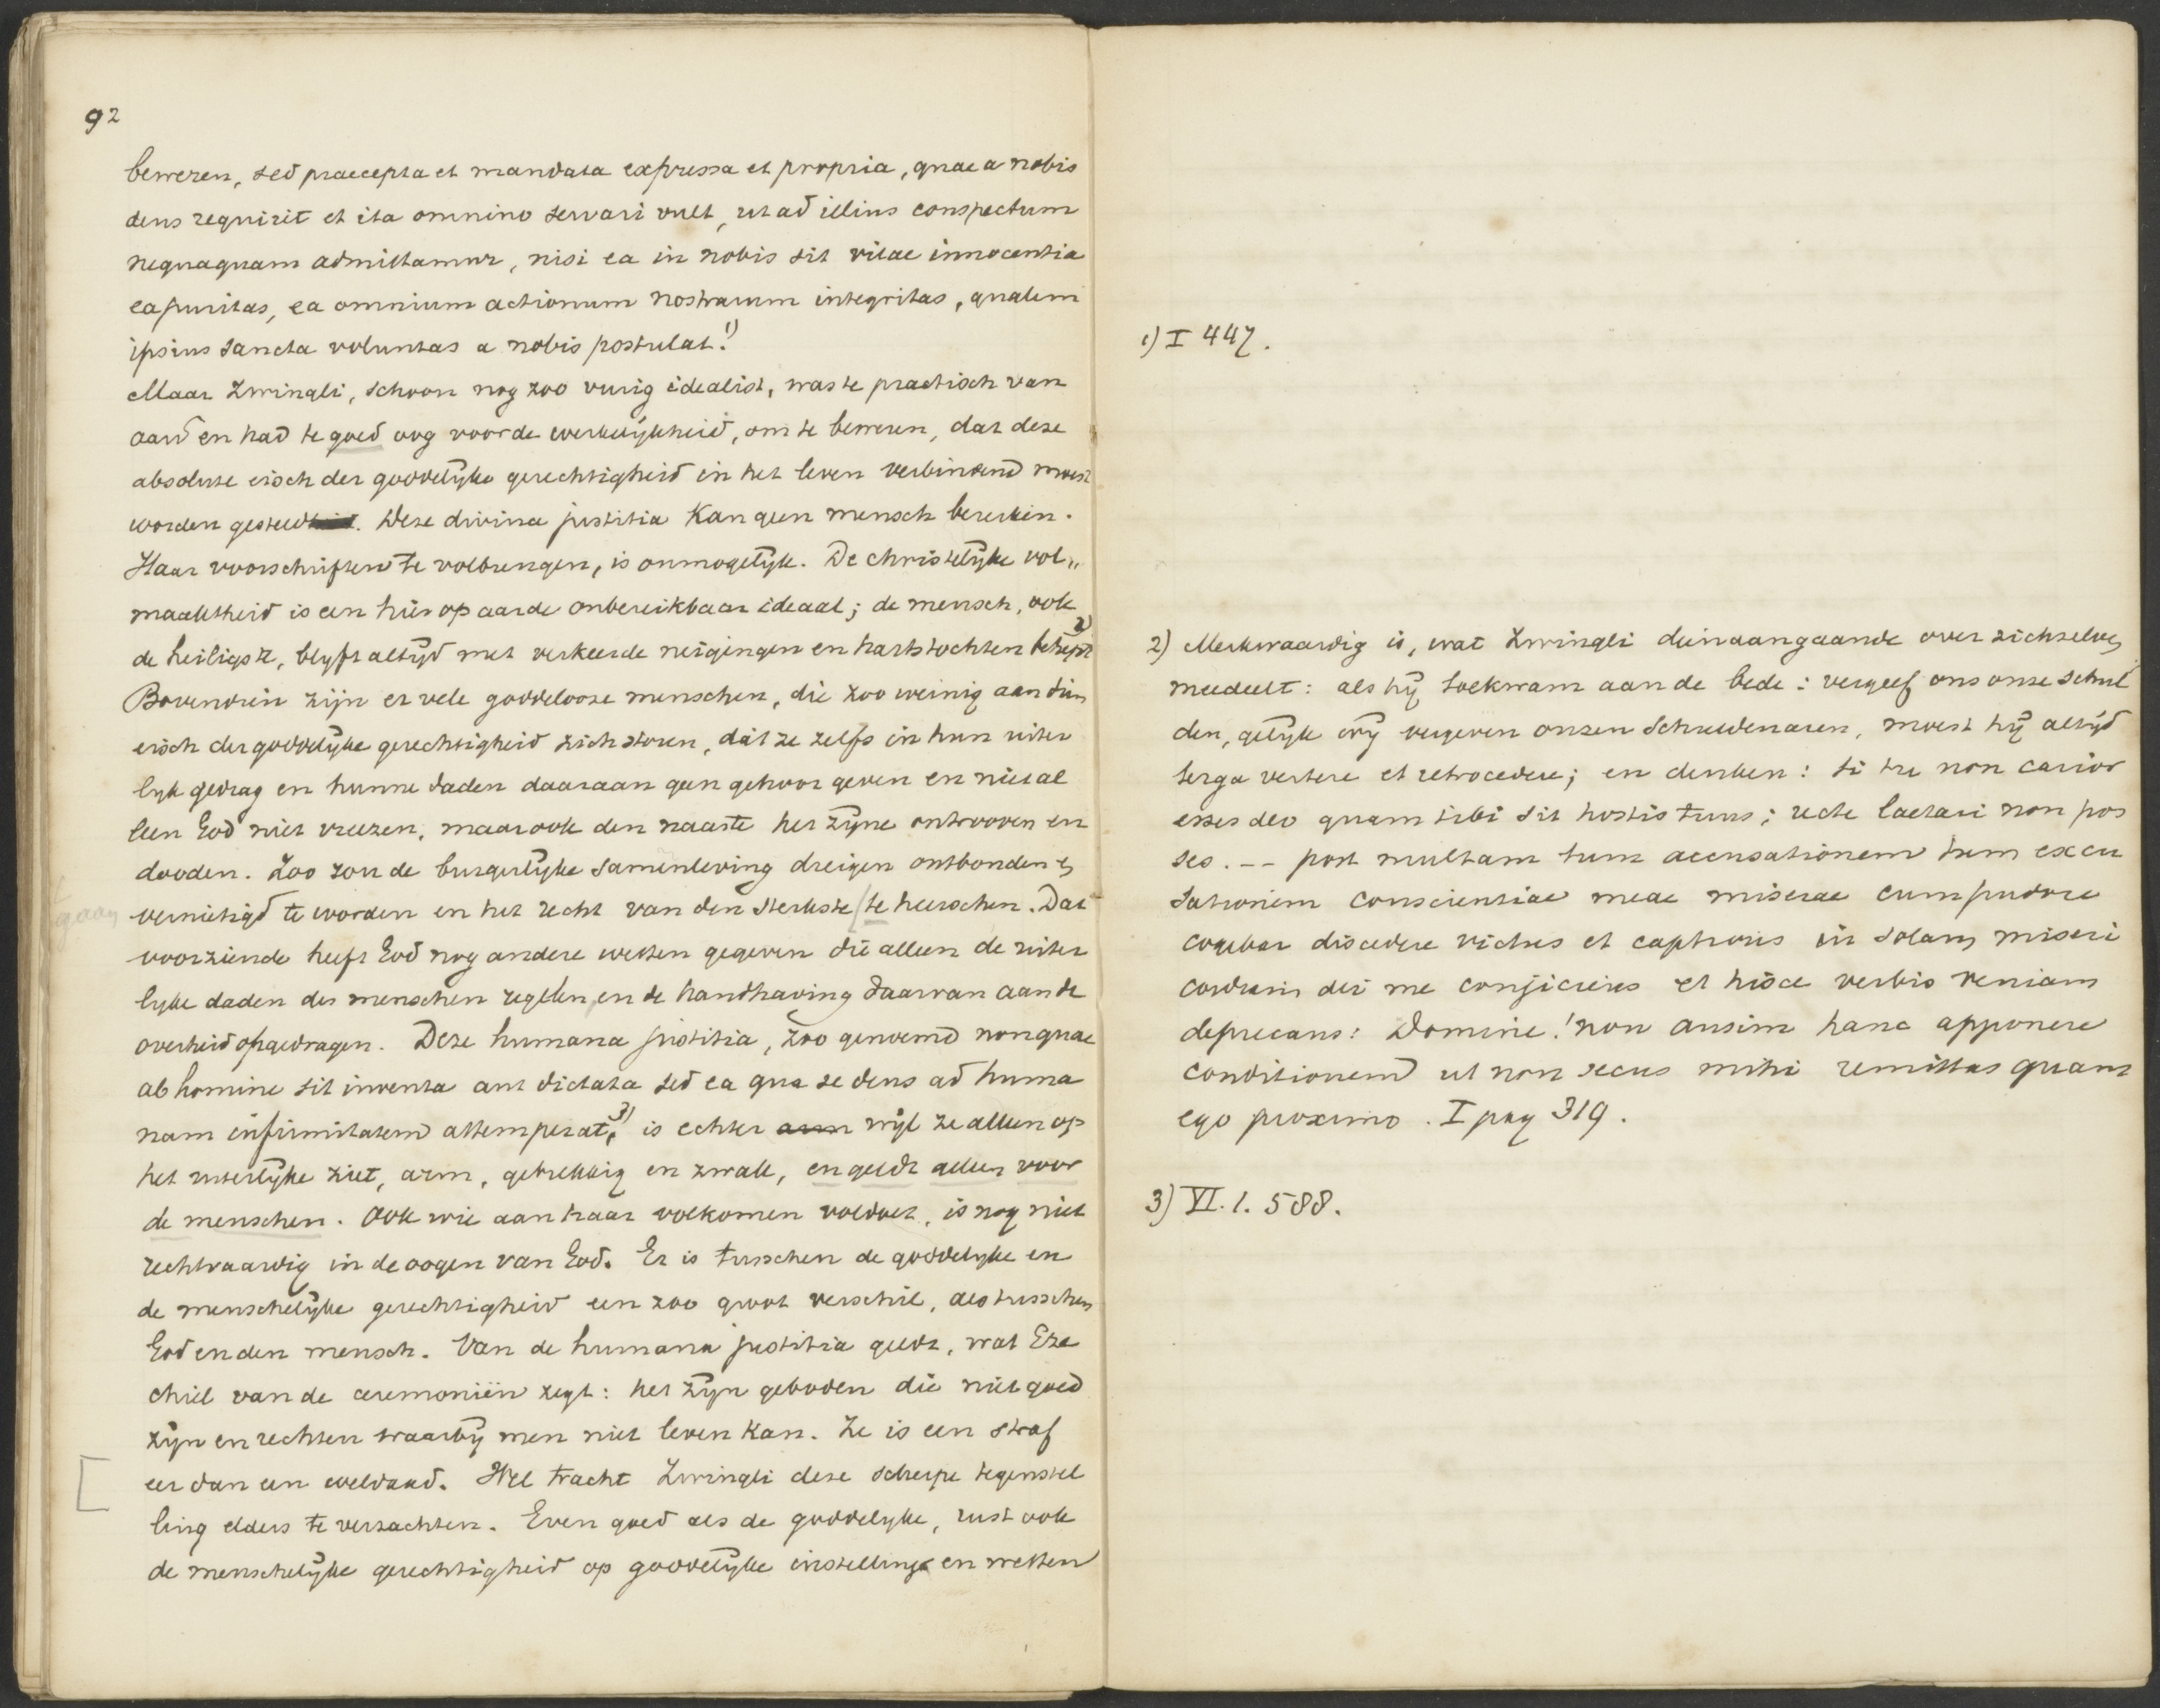 92
beweren, sed praecepta et mandata expressa et propria, quae a nobis
deus requirit et ita omnino servari vult, ut ad illius conspectum
nequaquam admittamur, nisi ea in nobis sit vitae innocentia
ea puritas, ea omnium actionum nostrarum integritas, qualem
ipsius sancta voluntas a nobis postulat. 1)
Maar Zwingli, schoon nog zoo vurig idealist, was te practisch van
aard en had te goed oog voor de werkelijkheid, om te beweren, dat deze
absolute eisch der goddelijke gerechtigheid in het leven verbindend moest
worden gesteld. Deze divina justitia kan geen mensch bereiken.
Haar voorschriften te volbrengen, is onmogelijk. De christelijke vol„
maaktheid is een hier op aarde onbereikbaar ideaal; de mensch, ook
de heiligste, blijft altijd met verkeerde neigingen en hartstochten behept 2)
Bovendien zijn er vele goddelooze menschen, die zoo weinig aan dien
eisch der goddelijke gerechtigheid zich storen, dat ze zelfs in hun uiter
lijk gedrag en hunne daden daaraan geen gehoor geven en niet al
leen God niet vreezen, maar ook den naaste het zijne ontrooven en
dooden. Zoo zou de burgerlijke samenleving dreigen ontbonden en
vernietigd te worden en het recht van den sterkste te heerschen. Dat
gaan
voorziende heeft God nog andere wetten gegeven die alleen de uiter
lijke daden des menschen regelen, en de handhaving daarvan aan de
overheid opgedragen. Deze humana justitia, zoo genoemd non quae
ab homine sit inventa aut dictata sed ea qua se deus ad huma
nam infirmitatem attemperat, 3) is echter arm wijl ze alleen op
het uiterlijke ziet, arm, gebrekkig en zwak, en geldt alleen voor
de menschen. Ook wie aan haar volkomen voldoet, is nog niet
rechtvaardig in de oogen van God. Er is tusschen de goddelijke en
de menschelijke gerechtigheid een zoo groot verschil, als tusschen
God en den mensch. Van de humana justitia geldt, wat Eze
chiel van de ceremoniën zegt: het zijn geboden die niet goed
zijn en rechten waarbij men niet leven kan. Ze is een straf
eer dan een weldaad. Wel tracht Zwingli deze scherpe tegenstel
ling elders te verzachten. Even goed als de goddelijke, rust ook
de menschelijke gerechtigheid op goddelijke instelling en wetten
1) I 447.
2) Merkwaardig is, wat Zwingli dienaangaande over zichzelven
meedeelt: als hij toekwam aan de bede: vergeef ons onze schul
den, gelijk wij vergeven onzen schuldenaren, moest hij altijd
terga vertere et retrocedere; en denken: si tu non carior
esses deo quam tibi sit hostis tuus; recte laetari non pos
ses. -- post multam tum accusationem tum excu
sationem conscientiae meae miserae cum pudore
cogebar discedere victus et captivus in solam miseri
cordiam dei me conjiciens et hisce verbis veniam
deprecans: Domine! non ausim hanc apponere
conditionem ut non secus mihi remittas quam
ego proximo. I pag 319.
3) VI. 1. 588.